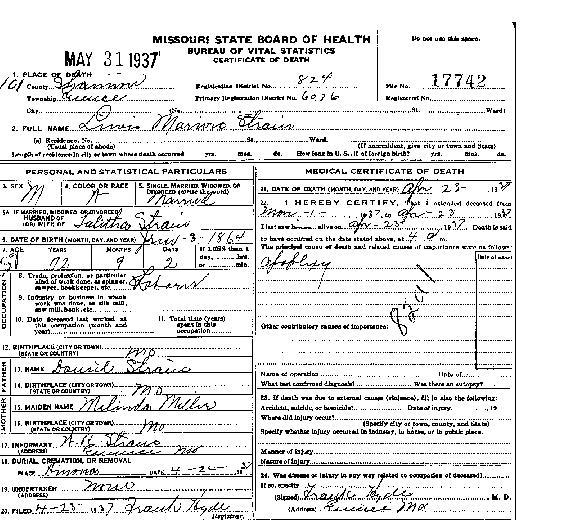 MISSOURI STATE BOARD OF HEALTH
BUREAU OF VITAL STATISTICS
CERTIFICATE OF DEATH
Do not use this space.
MAY 31 1937
1. PLACE OF DEATH
County Shannon Registration District No. 824 File No. 17742
Township Primary Registration District No. 6036 Registered No.
City (No. St. Ward)
2. FULL NAME
(a) Residence, No. St. Ward.
(Usual place of abode) (If nonresident, give city or town and State)
Length of residence in city or town where death occurred yrs. mos. ds. How long in U. S., if of foreign birth? yrs. mos. ds.
PERSONAL AND STATISTICAL PARTICULARS
3. SEX M
4. COLOR OR RACE
5. SINGLE, MARRIED, WIDOWED, OR DIVORCED (write the word) Married
5A. IF MARRIED, WIDOWED, OR DIVORCED HUSBAND OF (OR) WIFE OF
6. DATE OF BIRTH (MONTH, DAY, AND YEAR) 1864
7. AGE YEARS 72 MONTHS 9 DAYS 2 If LESS than 1 day, hrs. or min.
OCCUPATION
8. Trade, profession, or particular kind of work done, as spinner, sawyer, bookkeeper, etc.
9. Industry or business in which work was done, as silk mill, saw mill, bank, etc.
10. Date deceased last worked at this occupation (month and year)
11. Total time (years) spent in this occupation
12. BIRTHPLACE (CITY OR TOWN) (STATE OR COUNTRY) Mo
FATHER
13. NAME
14. BIRTHPLACE (CITY OR TOWN) (STATE OR COUNTRY) Mo
MOTHER
15. MAIDEN NAME Melinda Miller
16. BIRTHPLACE (CITY OR TOWN) (STATE OR COUNTRY) Mo
17. INFORMANT
(ADDRESS) Mo
18. BURIAL, CREMATION, OR REMOVAL
PLACE DATE 4-24- 37
19. UNDERTAKER None
(ADDRESS)
20. FILED 4-23- 1937 Frank Hyde
Registrar.
MEDICAL CERTIFICATE OF DEATH
21. DATE OF DEATH (MONTH, DAY, AND YEAR) Apr 23- 1937
22. I HEREBY CERTIFY, That I attended deceased from
Mar -1- 1937, to Apr-23 1937
I last saw alive on Apr-23 1937 Death is said
to have occurred on the date stated above, at 4 m.
The principal cause of death and related causes of importance were as follows:
Date of onset
Apoplexy
Other contributory causes of importance:
Name of operation Date of
What test confirmed diagnosis? Was there an autopsy?
23. If death was due to external causes (violence), fill in also the following:
Accident, suicide, or homicide? Date of injury , 19
Where did injury occur?
(Specify city or town, county, and State)
Specify whether injury occurred in industry, in home, or in public place.
Manner of injury
Nature of injury
24. Was disease or injury in any way related to occupation of deceased?
If so, specify
(Signed) Frank Hyde M. D.
(Address) Mo